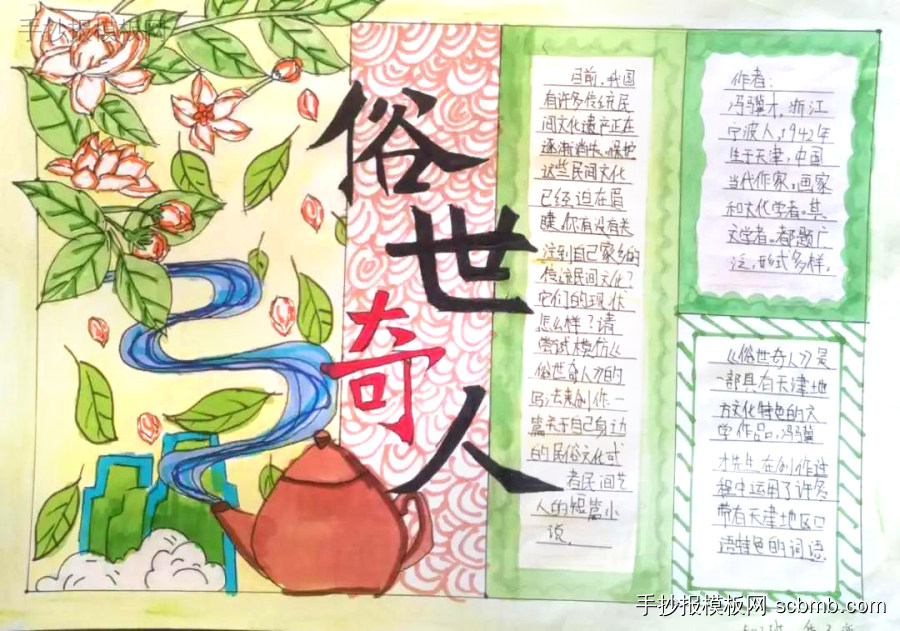 手抄报模板网
俗
世
奇
人
目前,我国
有许多传统民
间文化遗产正在
逐渐消失,保护
这些民间文化
已经迫在眉
睫,你有没有关
注到自己家乡的
传统民间文化?
它们的现状
怎么样?请
尝试模仿《
俗世奇人》的
写法来创作一
篇关于自己身边
的民俗文化或
者民间艺
人的短篇小
说。
作者:
冯骥才,浙江
宁波人,1942年
生于天津,中国
当代作家,画家
和文化学者。其
文学者。都题广
泛,形式多样,
《俗世奇人》是
一部具有天津地
方文化特色的文
学作品,冯骥
才先生在创作过
程中运用了许多
带有天津地区口
语特色的词语
手抄报模板网 scbmb.com